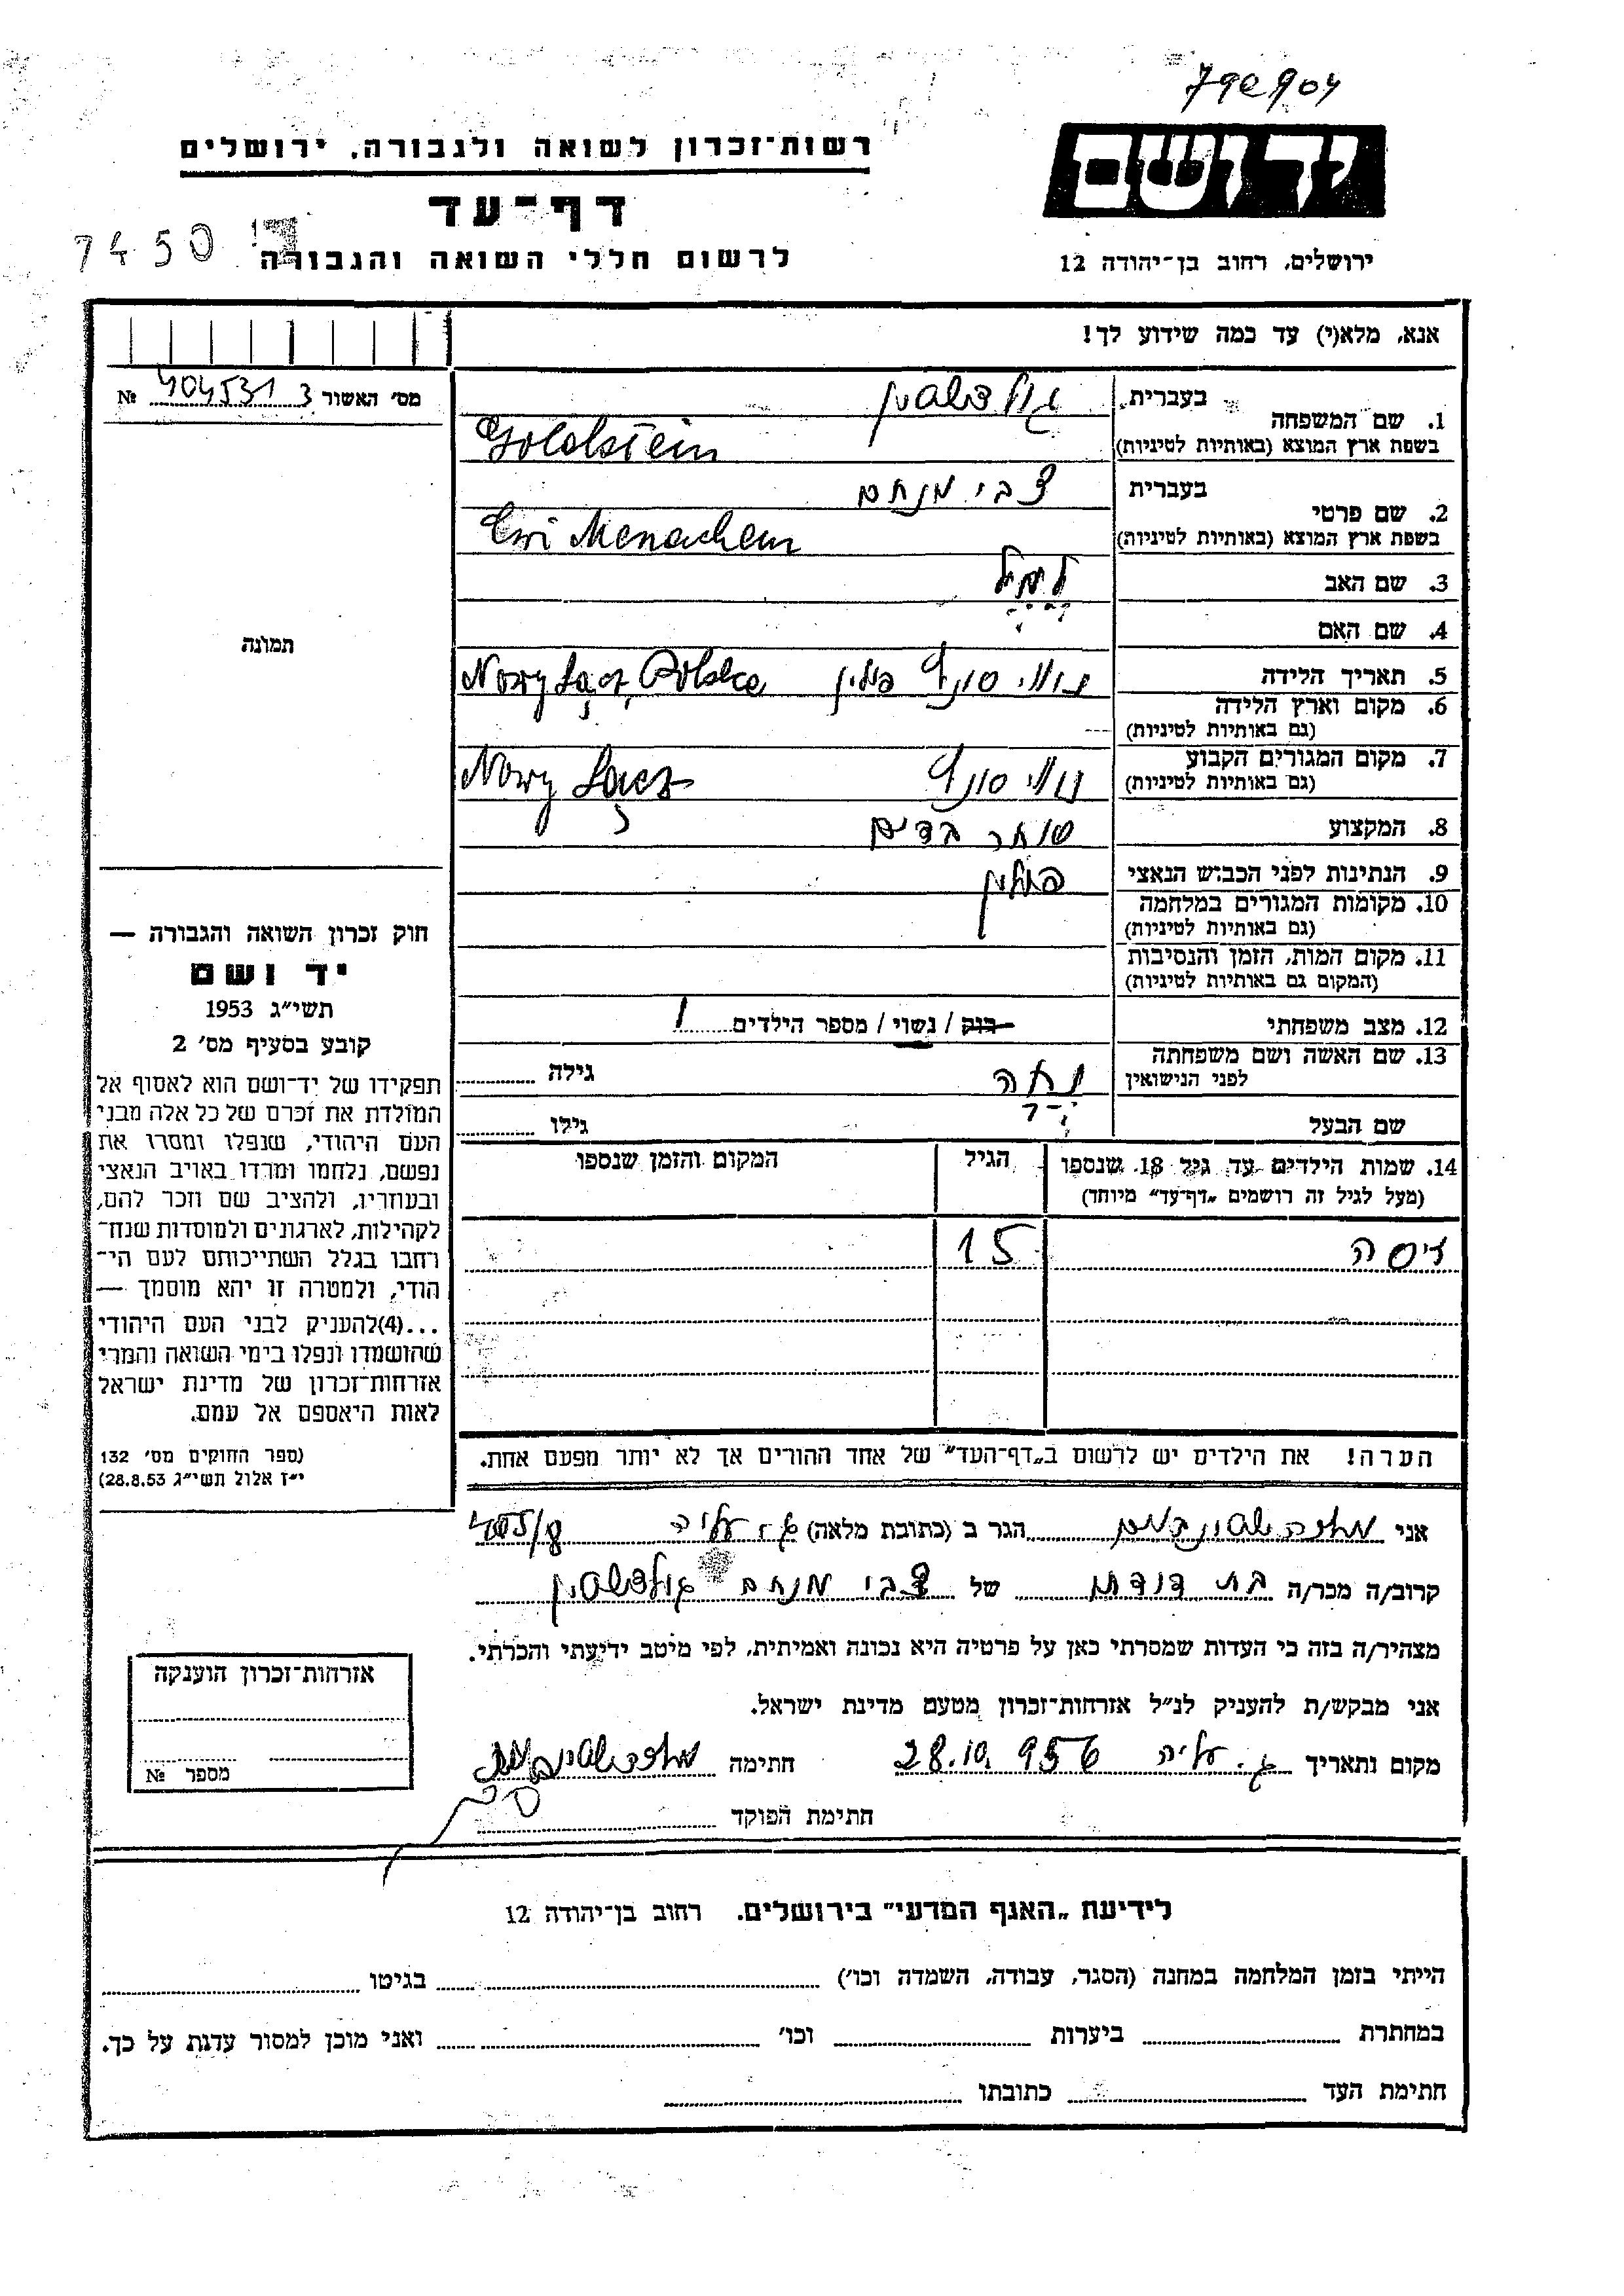 792904
יד ושם
רשות־זכרון לשואה ולגבורה, ירושלים
דף־עד
7450
לרשום חללי השואה והגבורה
ירושלים, רחוב בן־יהודה 12
אנא, מלא(י) עד כמה שידוע לך!
מס׳ האשור 3 404531 №
1. שם המשפחה בעברית גולדשטיין
בשפת ארץ המוצא (באותיות לטיניות) Goldstein
2. שם פרטי בעברית צבי מנחם
בשפת ארץ המוצא (באותיות לטיניות) Cwi Menachem
3. שם האב
4. שם האם
5. תאריך הלידה
6. מקום וארץ הלידה נובי סונץ פולין Nowy Sącz, Polska
(גם באותיות לטיניות)
7. מקום המגורים הקבוע נובי סונץ Nowy Sącz
(גם באותיות לטיניות)
8. המקצוע סוחר בדים
9. הנתינות לפני הכבוש הנאצי פולין
10. מקומות המגורים במלחמה
(גם באותיות לטיניות)
11. מקום המות, הזמן והנסיבות
(המקום גם באותיות לטיניות)
12. מצב משפחתי רווק / נשוי / מספר הילדים 1
13. שם האשה ושם משפחתה
לפני הנישואין נחה גילה
שם הבעל גילו
14. שמות הילדים עד גיל 18 שנספו הגיל המקום והזמן שנספו
(מעל לגיל זה רושמים „דף־עד״ מיוחד)
זיסה 15
הערה! את הילדים יש לרשום ב„דף־העד״ של אחד ההורים אך לא יותר מפעם אחת.
תמונה
חוק זכרון השואה והגבורה —
יד ושם
תשי״ג 1953
קובע בסעיף מס׳ 2
תפקידו של יד־ושם הוא לאסוף אל
המולדת את זכרם של כל אלה מבני
העם היהודי, שנפלו ומסרו את
נפשם, נלחמו ומרדו באויב הנאצי
ובעוזריו, ולהציב שם וזכר להם,
לקהילות, לארגונים ולמוסדות שנח־
רחבו בגלל השתייכותם לעם הי־
הודי, ולמטרה זו יהא מוסמך —
...(4)להעניק לבני העם היהודי
שהושמדו ונפלו בימי השואה והמרי
אזרחות־זכרון של מדינת ישראל
לאות היאספם אל עמם.
(ספר החוקים מס׳ 132
י״ז אלול תשי״ג 28.8.53)
אני הגר ב (כתובת מלאה) ג. עליה 405/8
קרוב/ה מכר/ה בת דודתו של צבי מנחם גולדשטיין
מצהיר/ה בזה כי העדות שמסרתי כאן על פרטיה היא נכונה ואמיתית, לפי מיטב ידיעתי והכרתי.
אני מבקש/ת להעניק לנ״ל אזרחות־זכרון מטעם מדינת ישראל.
מקום ותאריך ג. עליה 28.10.956 חתימה
חתימת הפוקד
אזרחות־זכרון הוענקה
מספר №
לידיעת „האגף המדעי״ בירושלים, רחוב בן־יהודה 12
הייתי בזמן המלחמה במחנה (הסגר, עבודה, השמדה וכו׳) בגיטו
במחתרת ביערות וכו׳ ואני מוכן למסור עדות על כך.
חתימת העד כתובתו